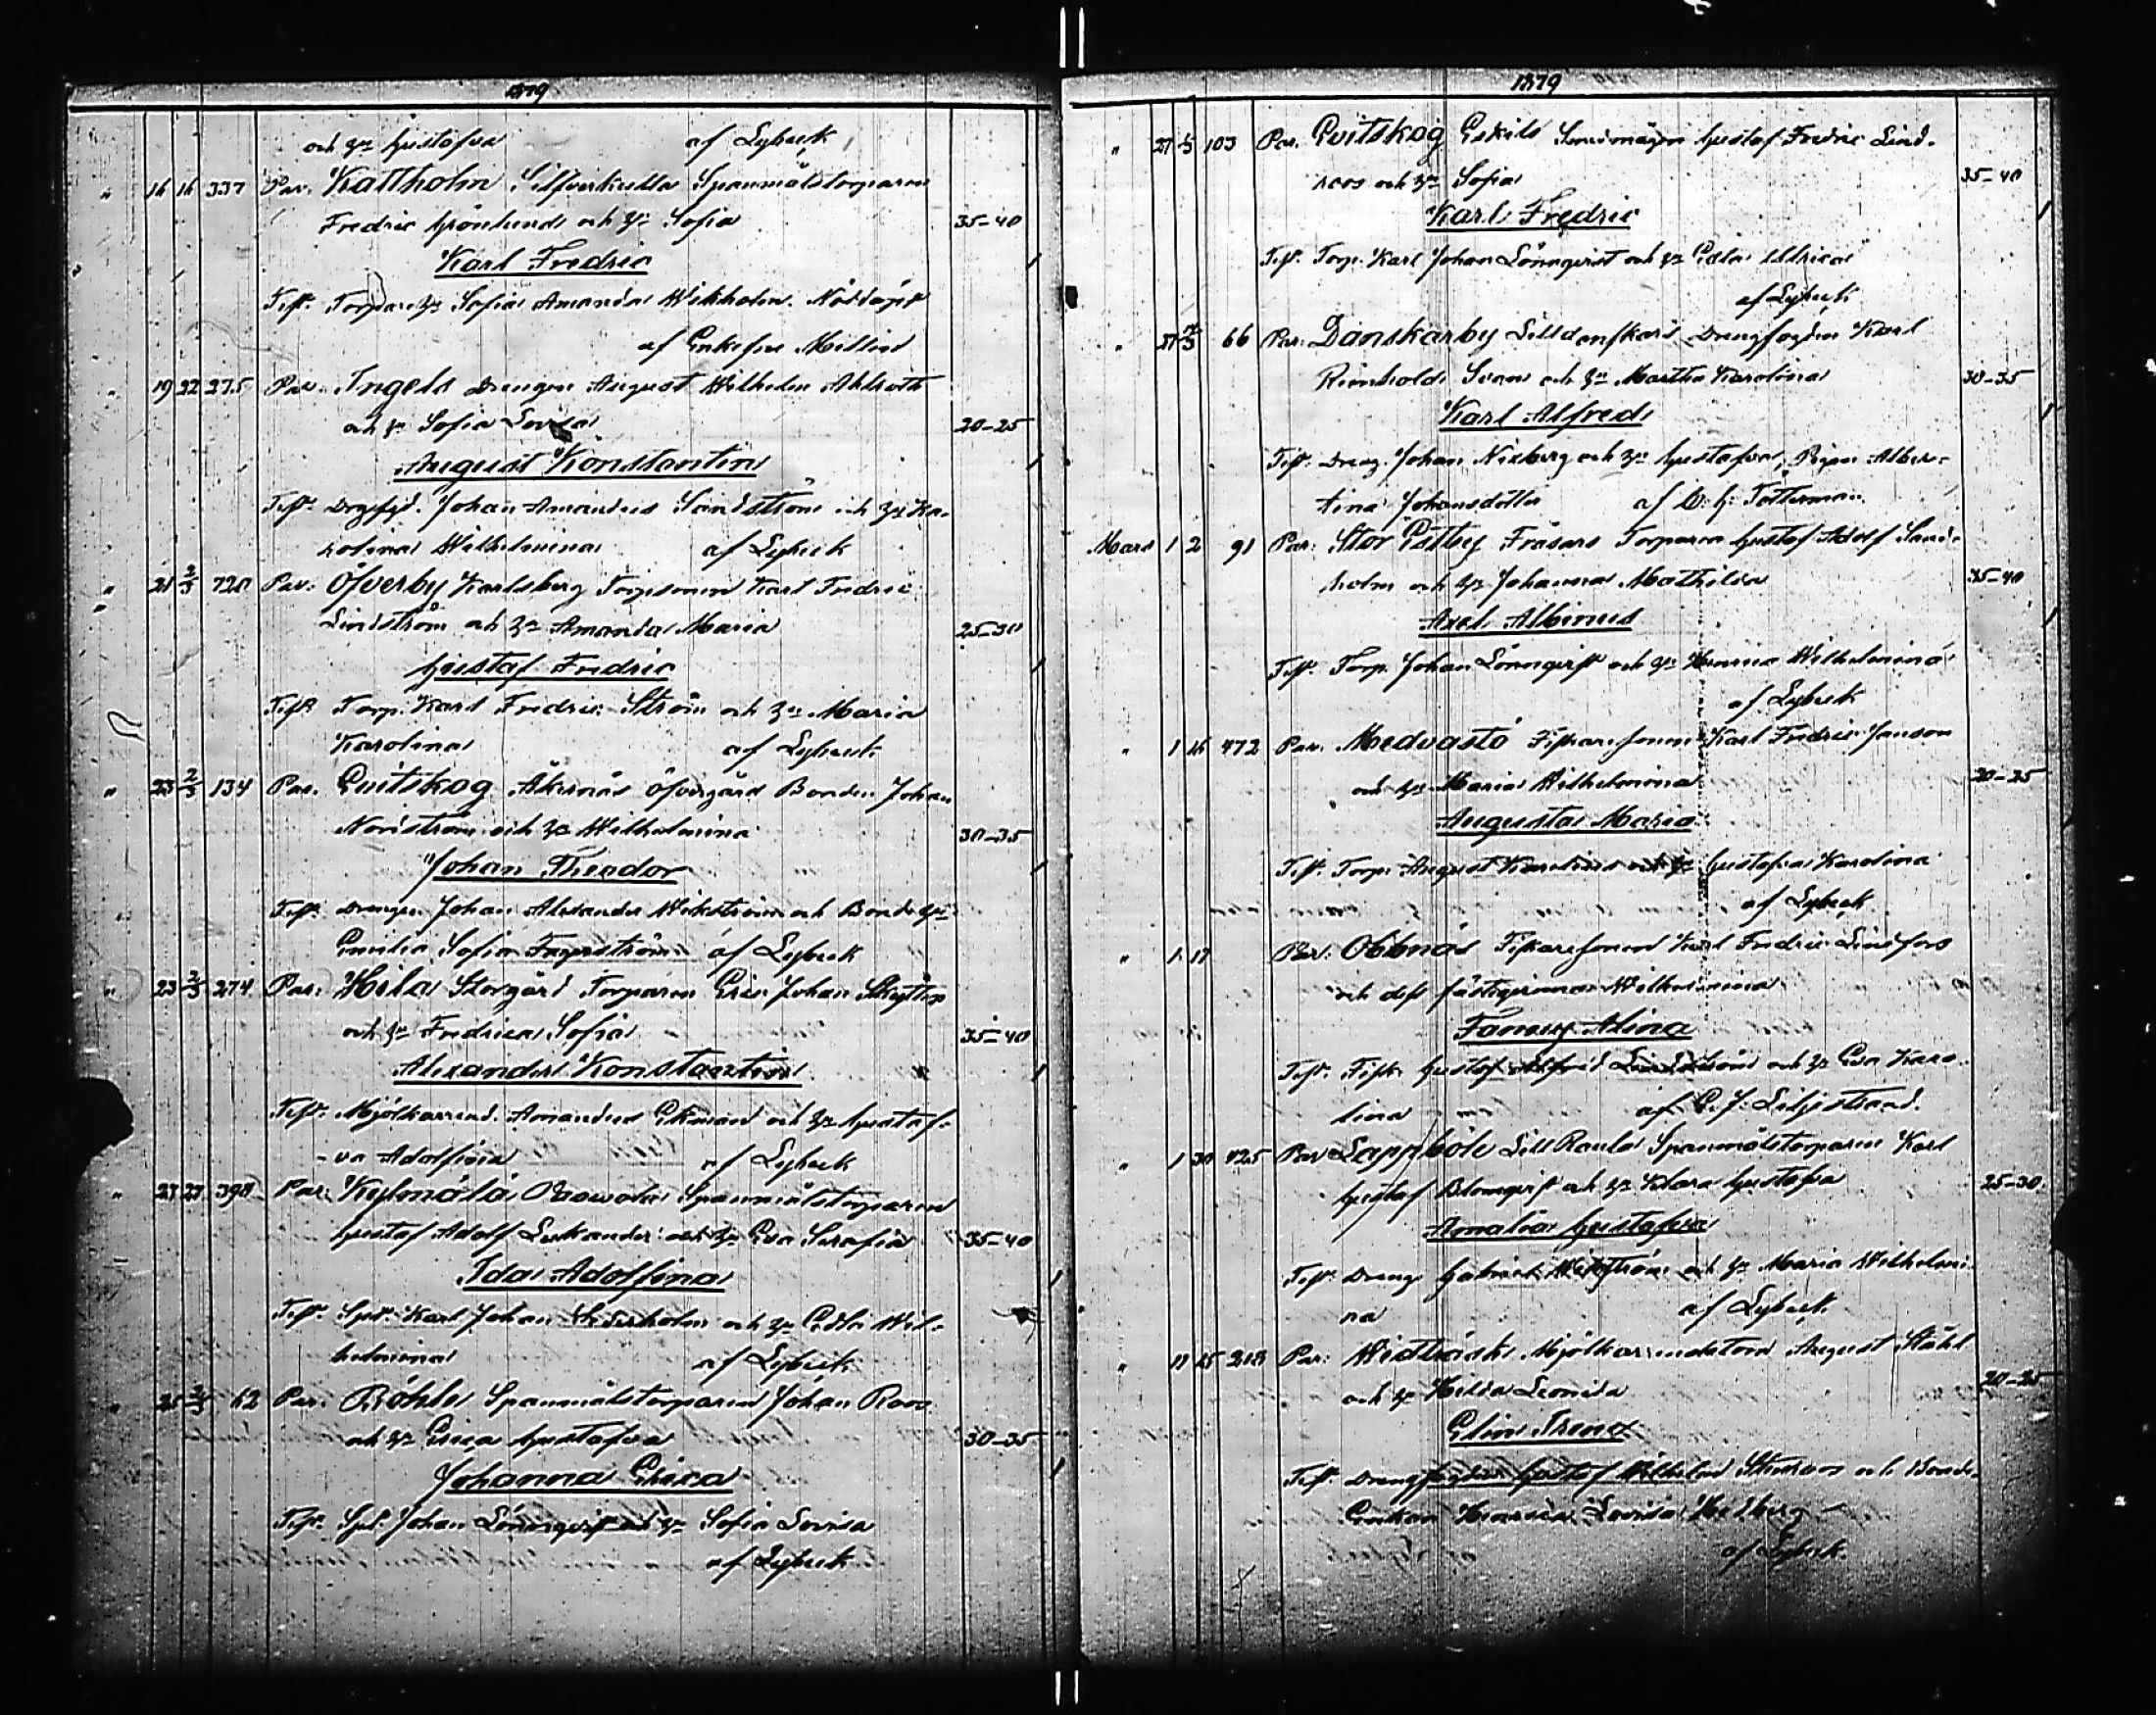 1879
och hu Gustafva af Lybeck
" 16 16 337 Par. Kattholm Silfverkulla Spanmålstorparen
Fredric Grönlund och hu Sofia 35-40
Karl Fredric
Test. Torpare hu Sofia Amanda Wikholm. Nöddöpt
af Enkefru Mellin
" 19 22 275 Par. Ingels Drengen August Wilhelm Ahlroth
och hu Sofia Lovisa 20-25
August Konstantin
Test. Drgfgd. Johan Amandus Sandström och hu Ka-
rolina Wilhelmina af Lybeck
" 21 2/3 720 Par. Öfverby Karlsberg Torparen Karl Fredric
Lindström och hu Amanda Maria 25-30
Gustaf Fredric
Test. Torp. Karl Fredric Ström och hu Maria
Karolina af Lybeck
" 23 2/3 134 Par. Evitskog Åkernäs Öfvergård Bonden Johan
Nordström och hu Wilhelmina 30-35
Johan Theodor
Test. Drengen Johan Alexander Wikström och Bonde hu
Emilia Sofia Fagerström af Lybeck
" 23 2/3 274 Par. Hila Storgård Torparen Eric Johan
och hu Fredrica Sofia 35-40
Alexander Konstantin
Test. Mjölkarrend. Amandus Ekman och hu Gustaf-
va Adolfina af Lybeck
" 23 23 398 Par. Kylmälä Spanmålstorparen
Gustaf Adolf och hu Eva Serafia 35-40
Ida Adolfina
Test. Spt. Karl Johan Söderholm och hu Edla Wil-
helmina af Lybeck
" 25 2/3 62 Par. Böhle Spanmålstorparen Johan Roos
och hu Erica Gustafva 30-35
Johanna Erica
Test. Spt. Johan Lönnqvist och hu Sofia Lovisa
af Lybeck
1879
" 27 103 Par. Evitskog Eskils Smedmågen Gustaf Fredric Lind-
roos och hu Sofia 35-40
Karl Fredric
Test. Torp. Karl Johan Lönnqvist och hu Edla Ulrica
af Lybeck
" 27 2/3 66 Par. Danskarby Lilldanskars Drengfogden Karl
Reinhold Svan och hu Martha Karolina 30-35
Karl Alfred
Test. Dreng. Johan Nixberg och hu Gustafva, Pigan Alber-
tina Johansdotter af C. G. Tötterman
Mars 1 2 91 Par. Stor Estby Frasars Torparen Gustaf Adolf Sand-
holm och hu Johanna Mathilda 35-40
Axel Albinus
Test. Torp. Johan Lönnqvist och hu Wilhelmina
af Lybeck
" 1 16 472 Par. Medvastö Fiskaresonen Karl Fredric Janson
och hu Maria Wilhelmina 20-25
Augusta Maria
Test. Torp. August och hu Gustafva Karolina
af Lybeck
" 1 17 Par. Obbnäs Fiskaresonen Karl Fredric Lindfors
och dess fästeqvinna Wilhelmina
Fanny Alina
Test. Fisk. Gustaf Alfred Lindström och hu Eva Karo-
lina af C. J. Liljestrand.
" 1 30 425 Par Lappböle Lill Ravals Spanmålstorparen Karl
Gustaf Blomqvist och hu Klara Gustafva 25-30
Amalia Gustafva
Test. Dreng Gabriel Wikström och hu Maria Wilhelmi-
na af Lybeck
" 11 15 218 Par. Mjölkarrendatorn August Ståhl
och hu Hilda Leonida 20-25
Elin Irene
Test. Drengfogden Gustaf Wilhelm Stenroos och Bonde-
Enkan Lovisa Hedberg
af Lybeck